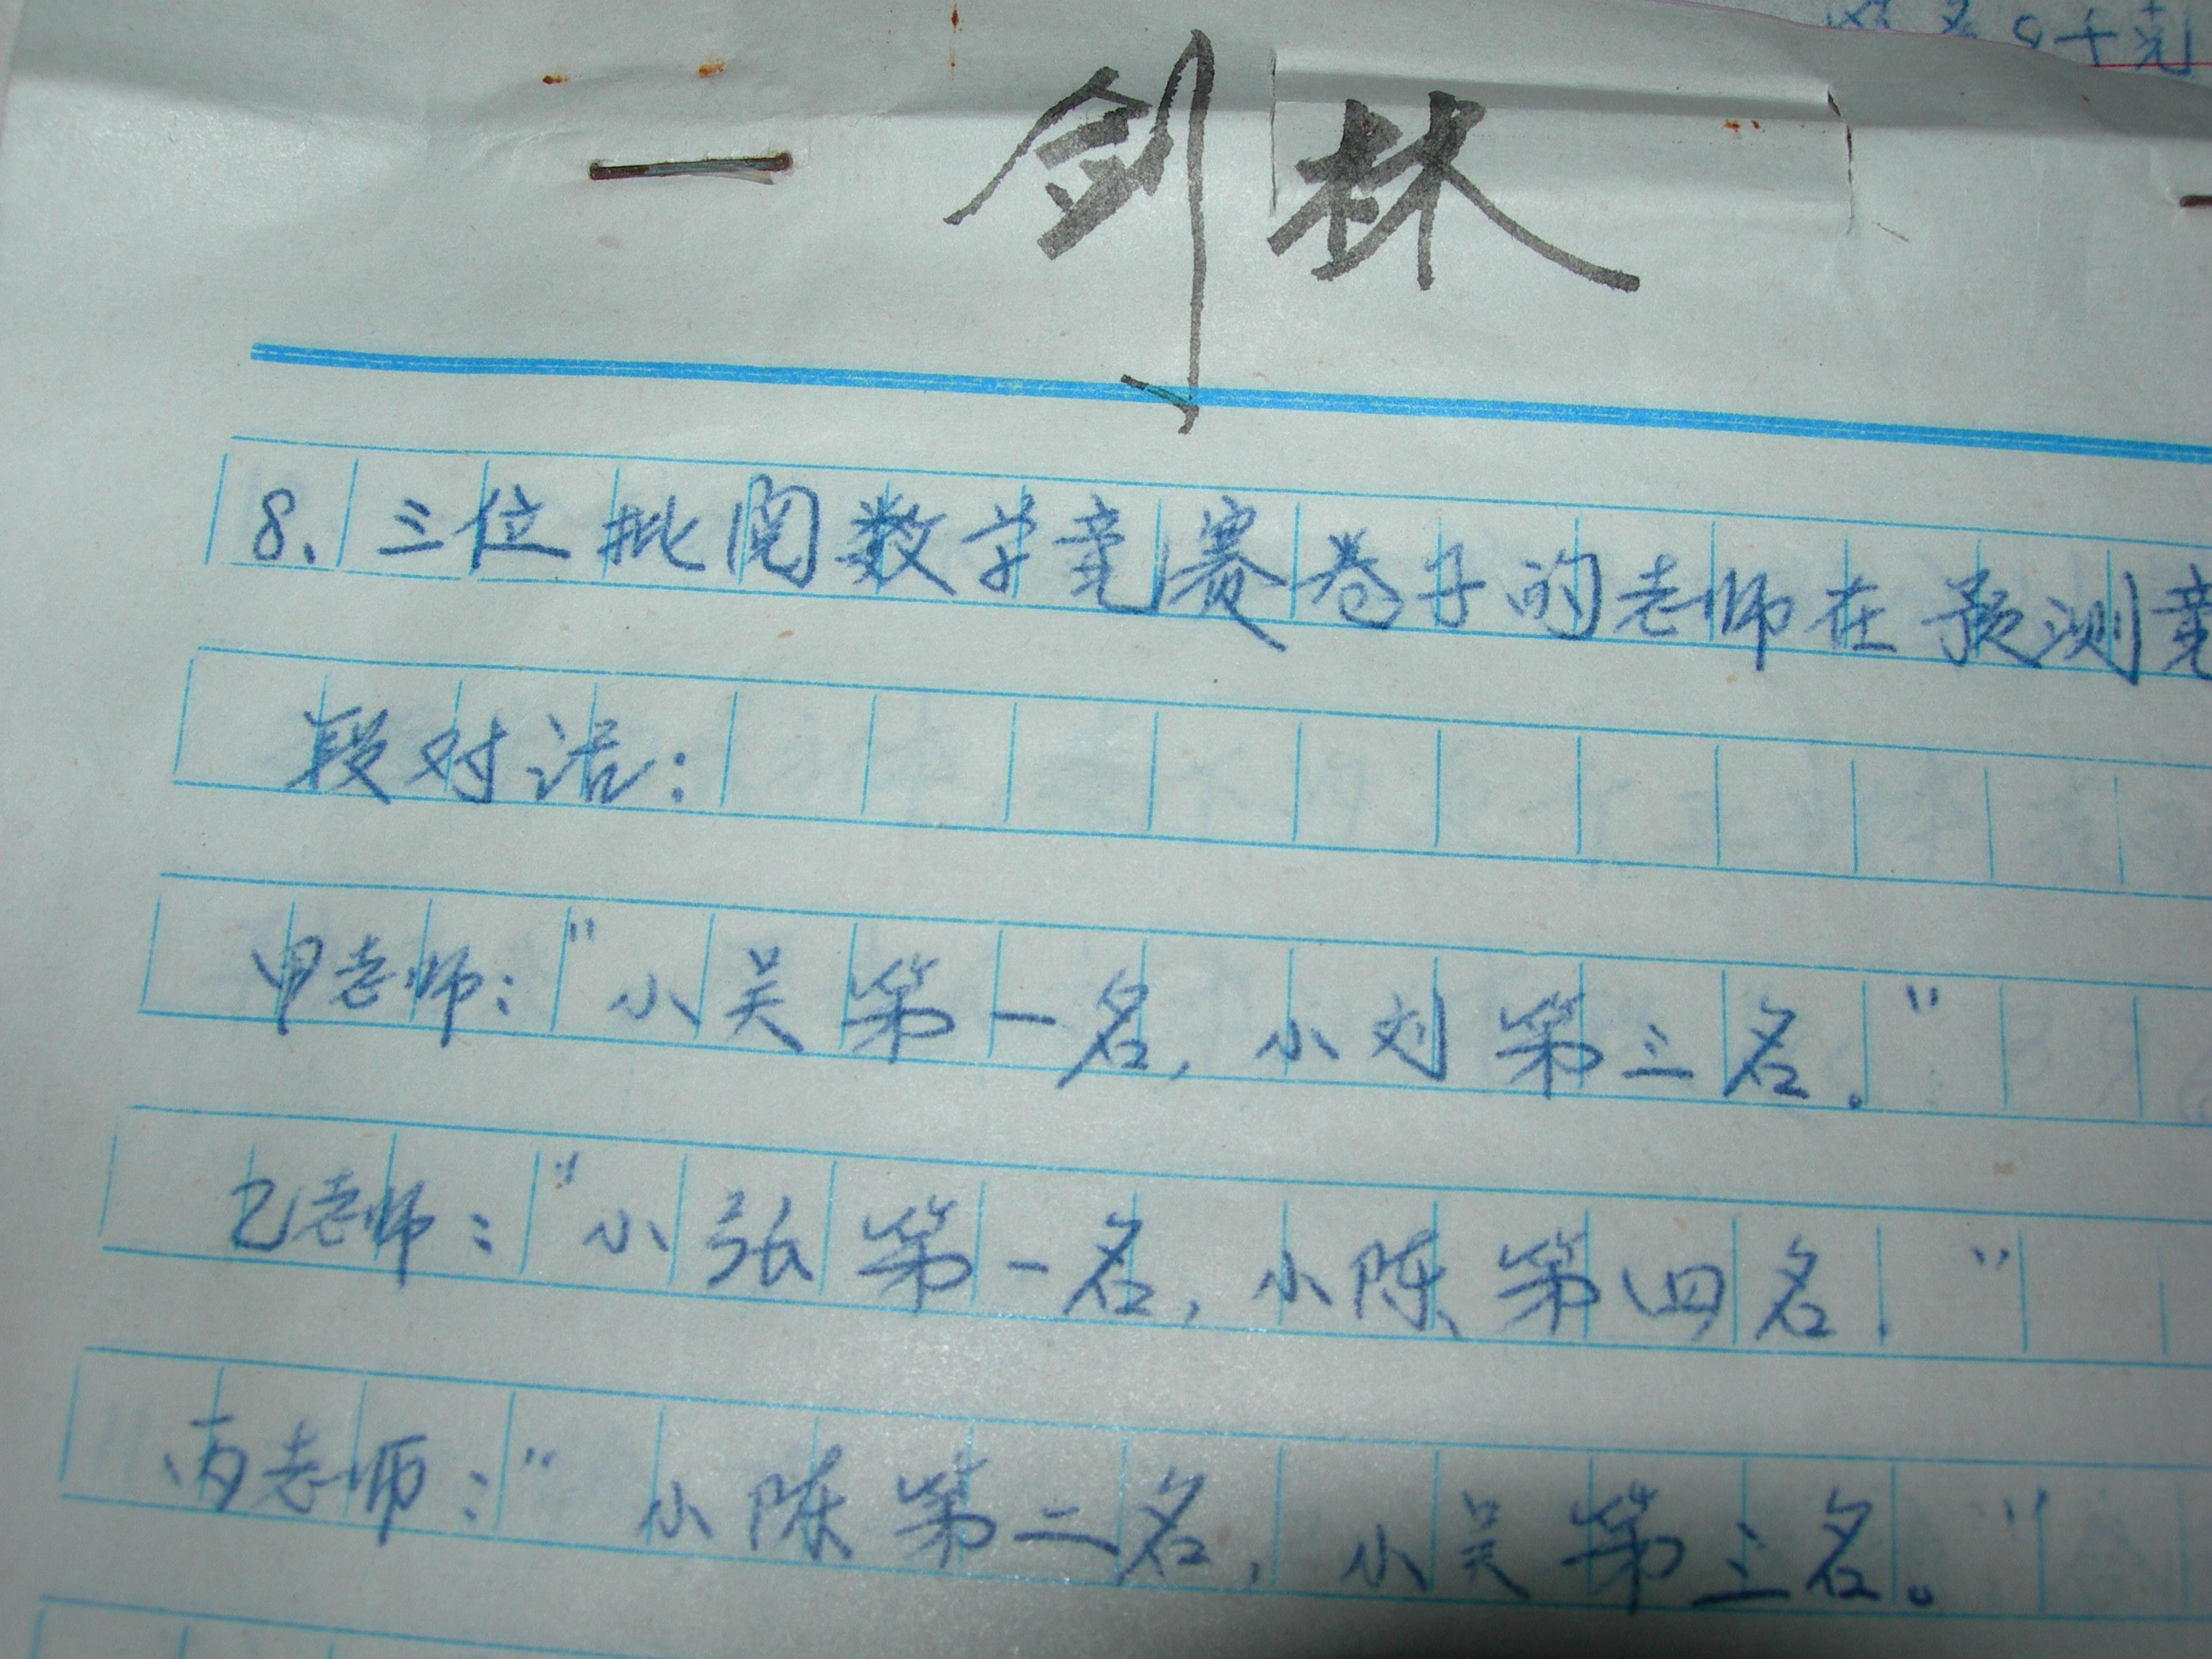 千克
剑林
8、三位批阅数学竞赛卷子的老师在预测竞
段对话：
甲老师："小吴第一名，小刘第三名。"
乙老师："小张第一名，小陈第四名."
丙老师："小陈第二名，小吴第三名。"